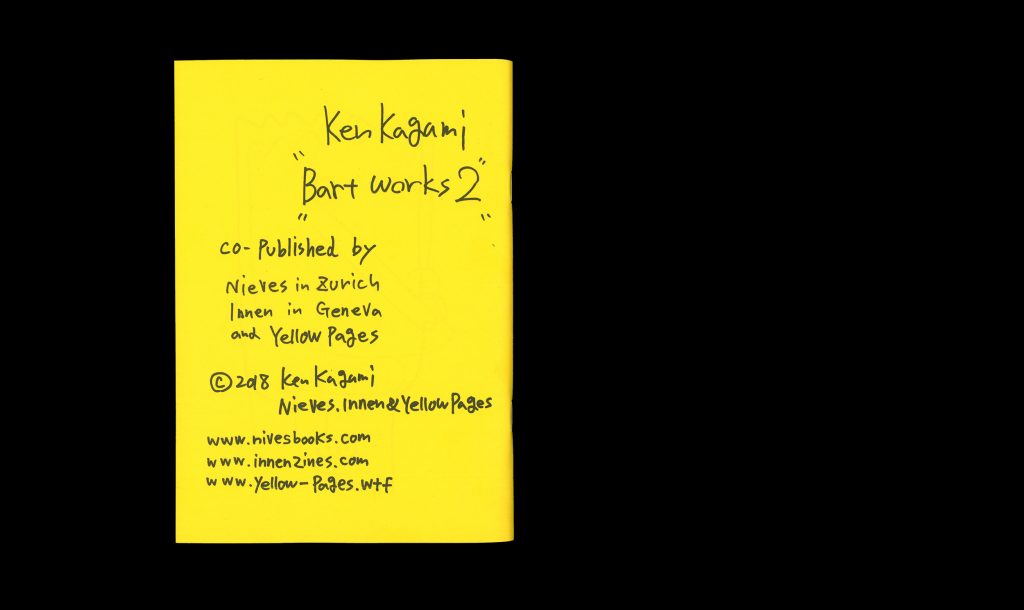 Ken Kagami
"Bart works 2"
co-Published by
Nieves in Zurich
Innen in Geneva
and Yellow Pages
©2018 Ken Kagami
Nieves.Innen&Yellow Pages
www.nivesbooks.com
www.innenzines.com
www.Yellow-Pages.wtf